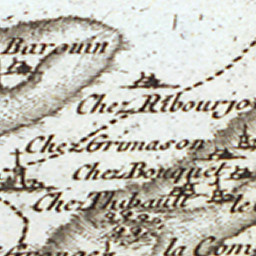 Barouin
Chez Ribourjo
Chez Grimason
Chez Bouquet
Chez Thibault
le
la Com
Granges